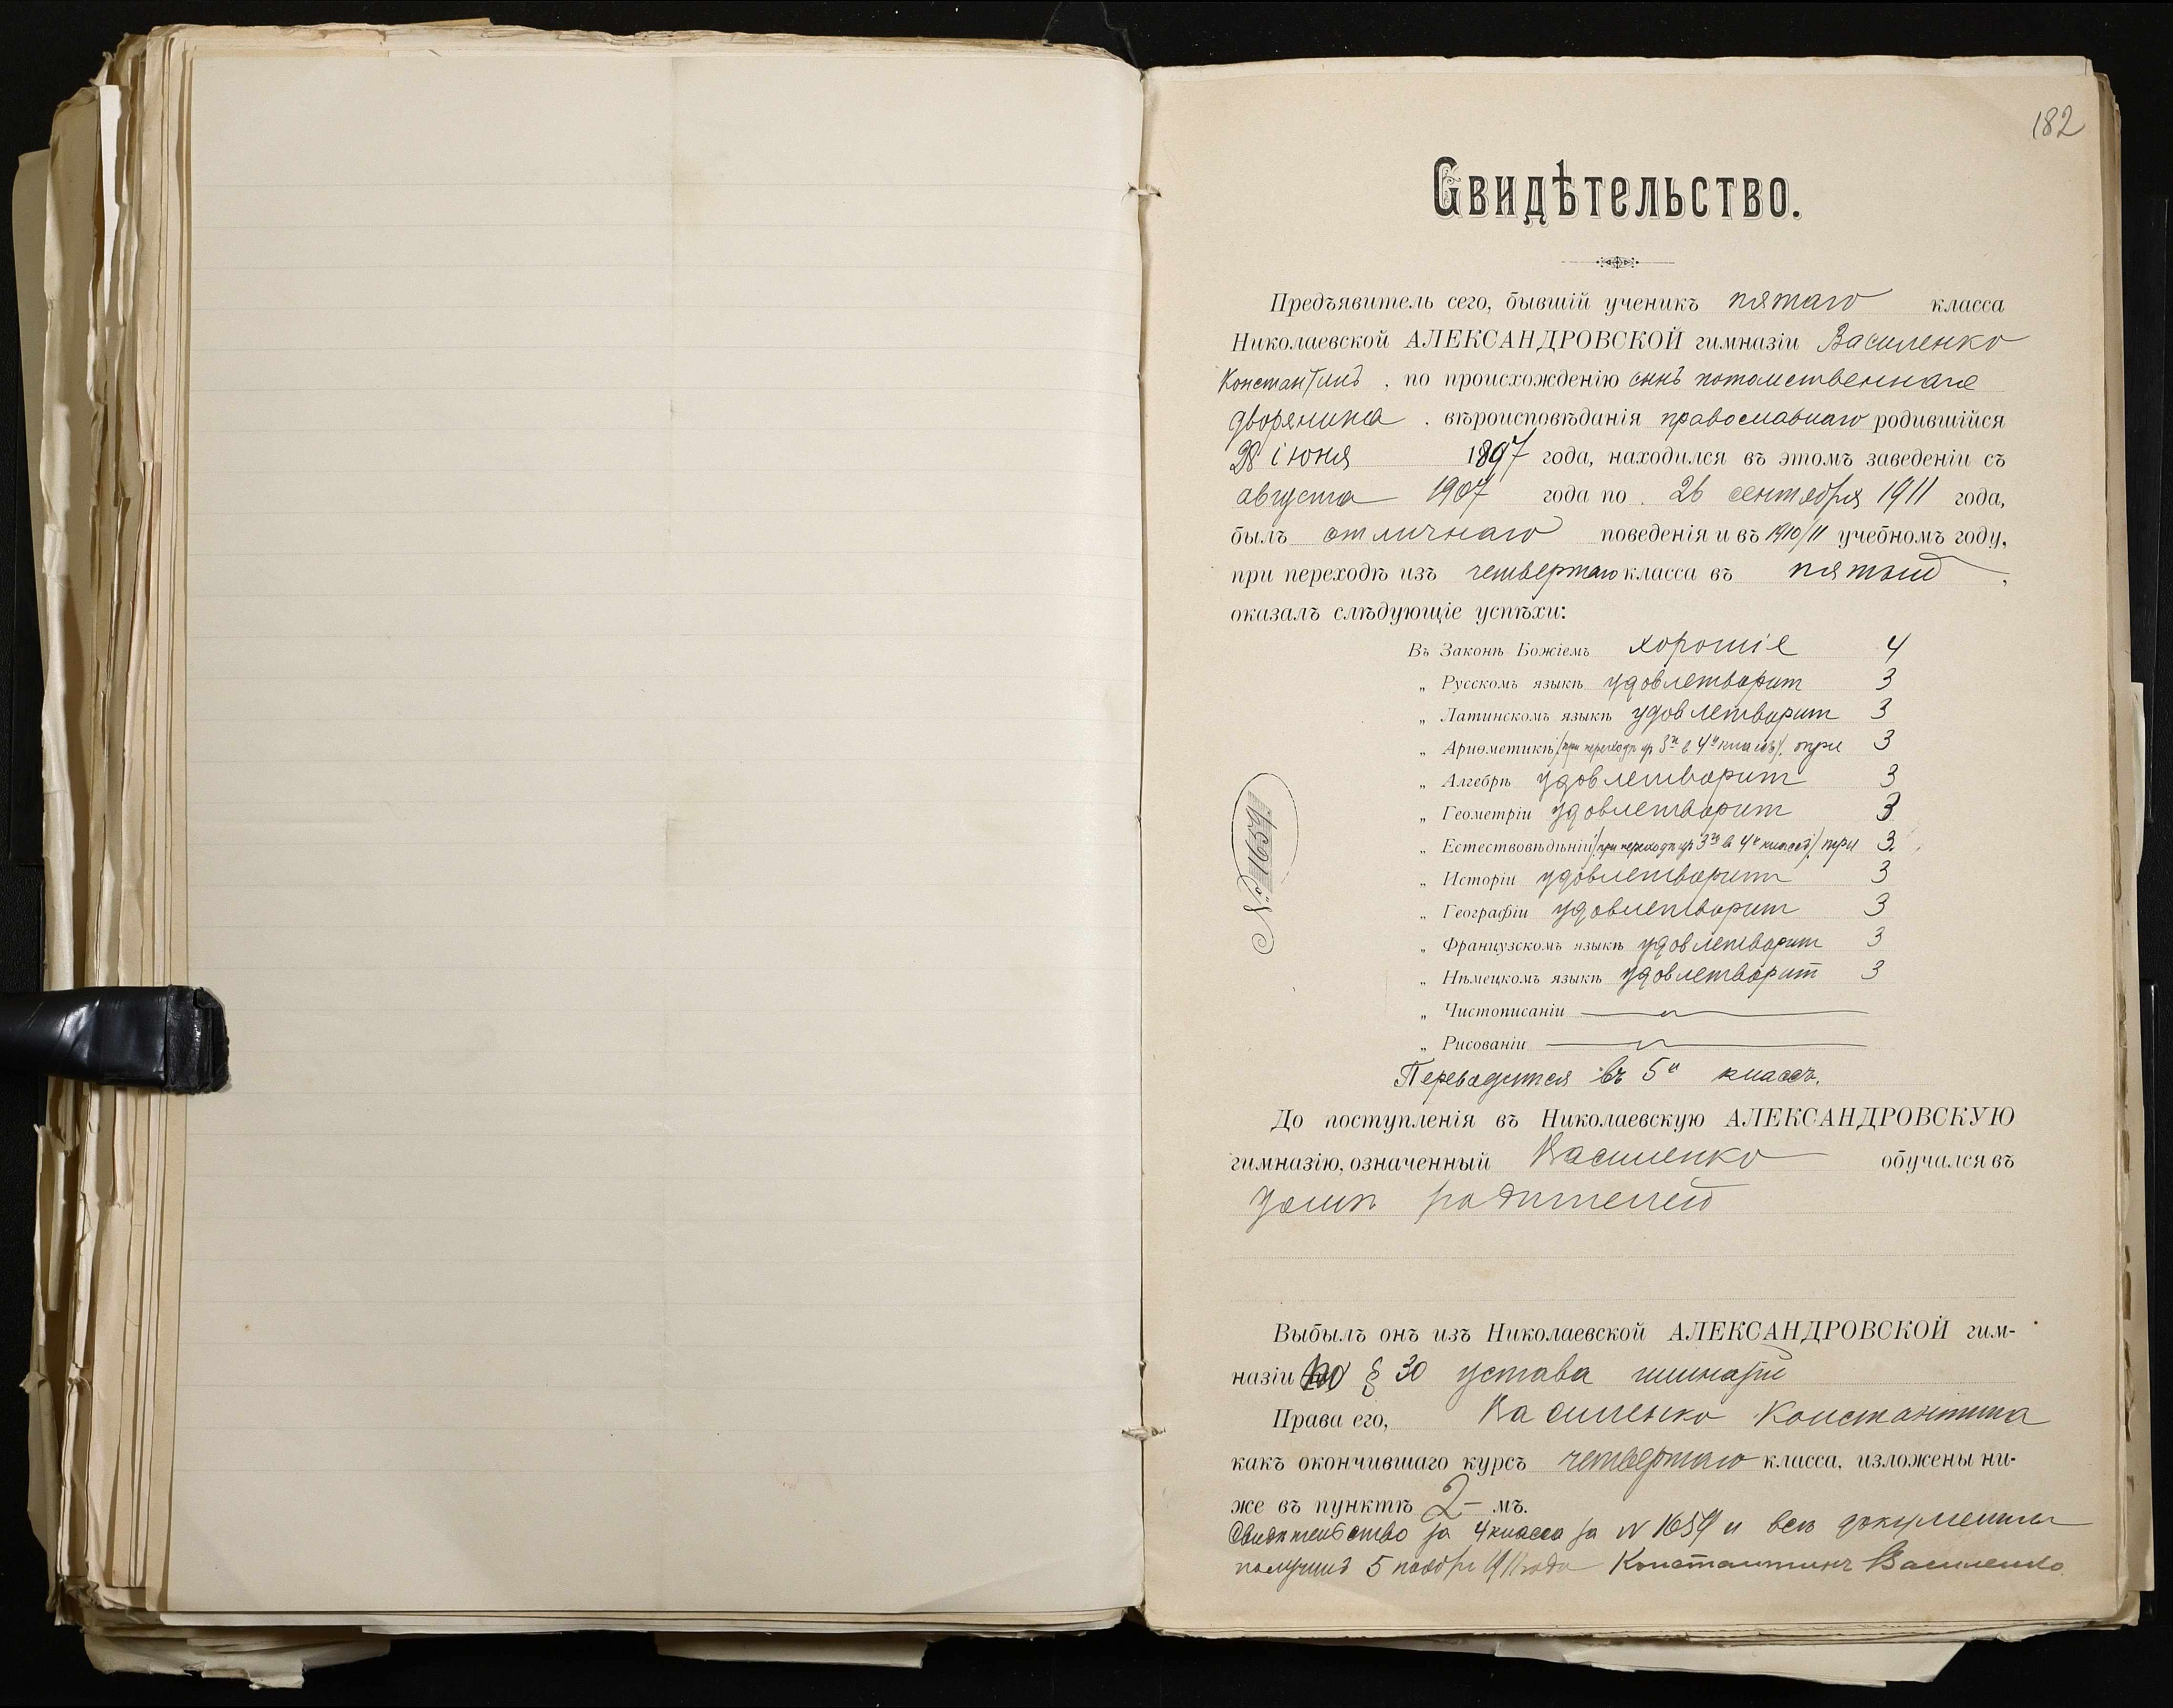 182
Свидѣтельство.
Предъявитель сего, бывшій ученикъ пятаго класса
Николаевской АЛЕКСАНДРОВСКОЙ гимназіи Василенко
Константинъ, по происхожденію сынъ потомственнаго
дворянина, вѣроисповѣданія православнаго родившійся
28 іюня 1897 года, находился въ этомъ заведеніи съ
августа 1907 года по 26 сентября 1911 года,
былъ отличнаго поведенія и въ 1910/11 учебномъ году,
при переходѣ изъ четвертаго класса въ пятый,
оказалъ слѣдующіе успѣхи:
Въ Законѣ Божіемъ хорошіе 4
„ Русскомъ языкѣ удовлетворит 3
„ Латинскомъ языкѣ удовлетворит 3
„ Ариѳметикѣ (при переходѣ из 3го в 4й классъ) три 3
„ Алгебрѣ удовлетворит 3
„ Геометріи удовлетворит 3
„ Естествовѣдѣніи (при переходѣ из 3го в 4й классъ) три 3
„ Исторіи удовлетворит 3
„ Географіи удовлетворит 3
„ Французскомъ языкѣ удовлетворит 3
„ Нѣмецкомъ языкѣ удовлетворит 3
„ Чистописаніи
„ Рисованіи
Переводится въ 5й классъ.
№ 1659
До поступленія въ Николаевскую АЛЕКСАНДРОВСКУЮ
гимназію, означенный Василенко обучался въ
домѣ родителей
Выбылъ онъ изъ Николаевской АЛЕКСАНДРОВСКОЙ гим-
назіи по § 30 устава гимназіи
Права его, Василенко Константина
какъ окончившаго курсъ четвертаго класса, изложены ни-
же въ пунктѣ 2-мъ.
Свидѣтельство за 4 класса за № 1659 и всѣ документы
получилъ 5 ноября 1911 года Константинъ Василенко.